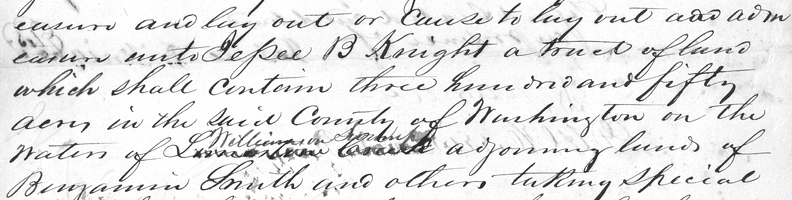 easure and lay out or Cause to lay out and adm
easure unto Jessee B Knight a tract of land
which shall contain three hundred and fifty
acres in the said County of Washington on the
Williamson
waters of adjoining lands of
Benjamin Smith and others taking special